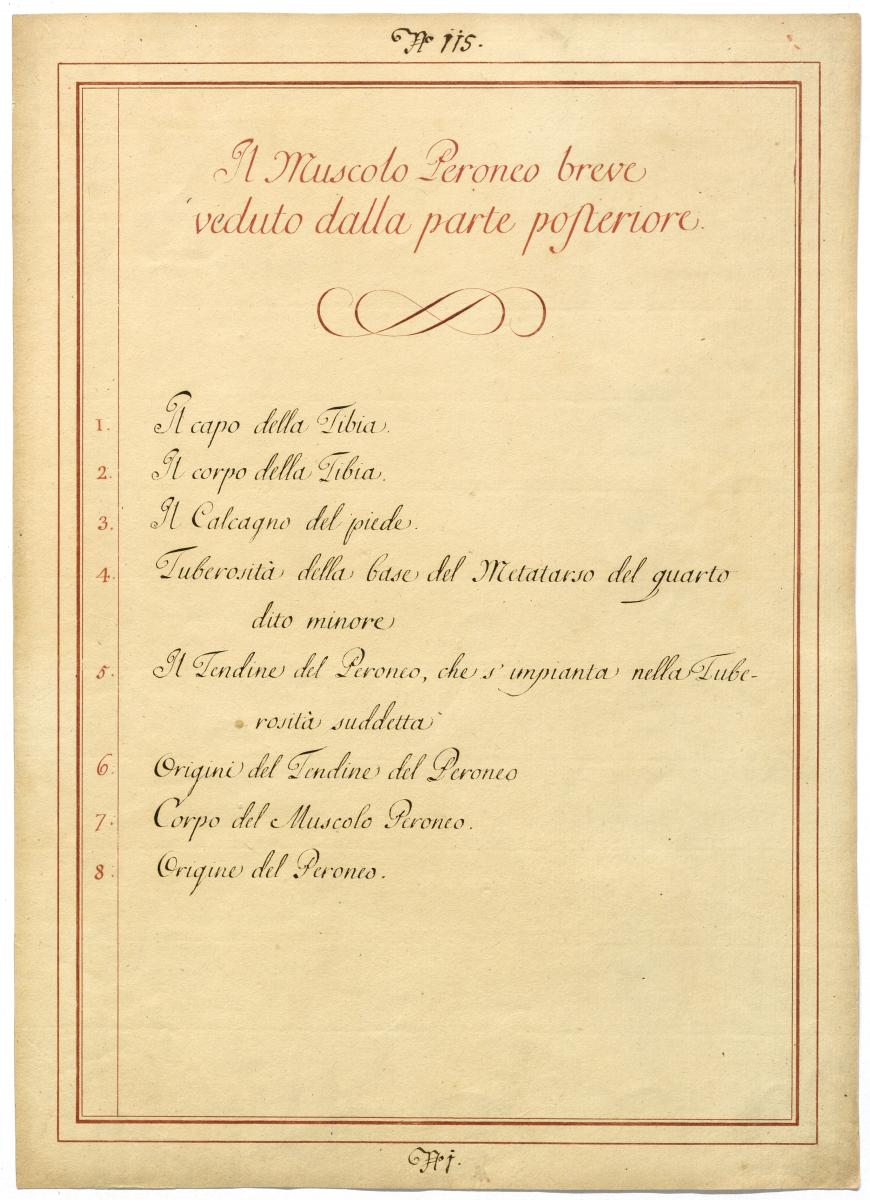 No 115.
Il Muscolo Peroneo breve
veduto dalla parte posteriore.
1. Il capo della Tibia.
2. Il corpo della Tibia.
3. Il Calcagno del piede.
4. Tuberosità della base del Metatarso del quarto
dito minore
5. Il Tendine del Peroneo, che s'impianta nella Tube-
rosità suddetta
6. Origini del Tendine del Peroneo
7. Corpo del Muscolo Peroneo.
8. Origine del Peroneo.
No 1.